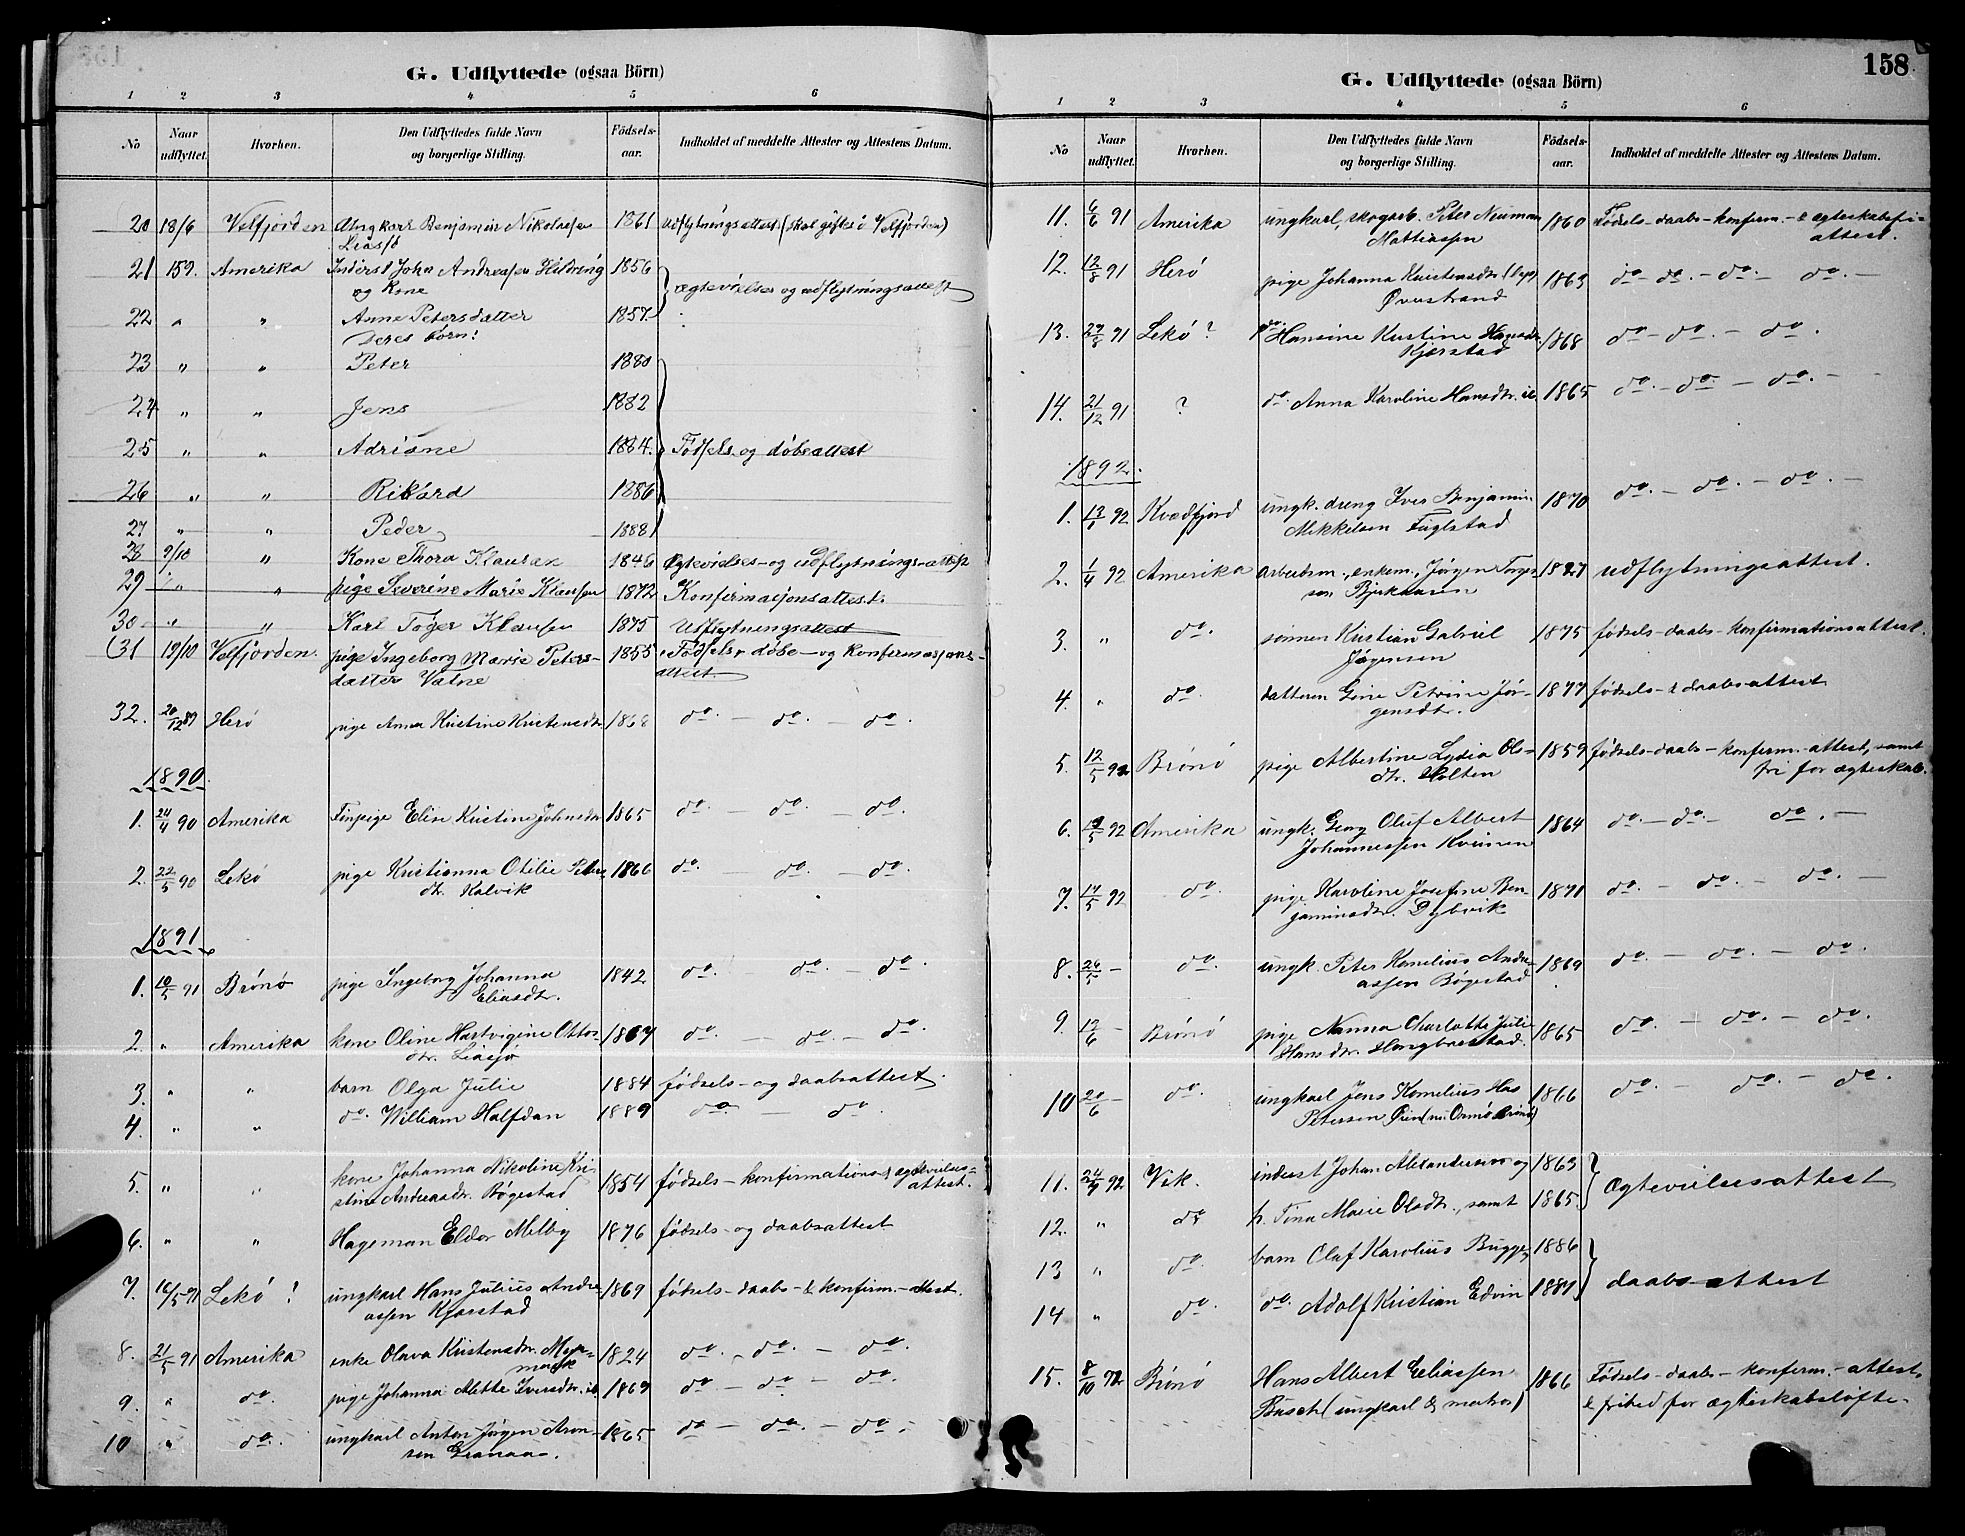 G. Udflyttede (ogsaa Börn)
1 2 3 4 5 6
No Naar udflyttet. Hvorhen. Den Udflyttedes fulde Navn og borgerlige Stilling. Födsels-aar. Indholdet af meddelte Attester og Attestens Datum.
20 18/6 Velfjorden Ungkarl Benjamin Nikolaisen 1861 Udflytningsattest (skal giftes i Velfjorden)
21 15/9. Amerika Inderst John Andreassen Hildring 1856
og Kone } ægtevielses og udflytningsattest
22 " " Anne Petersdatter 1857.
Deres börn:
23 " " Peter 1880
24 " " Jens 1882
25 " " Adriane 1884. Födsels og döbeattest
26 " " Rikard 1886
27 " " Peder 1888
28 9/10 " Kone Thora Klausen 1846 Ægtevielses- og udflytnings-attest
29 " " pige Severine Marie Klausen 1872 Konfirmasjonsattest.
30 " " Karl Töger Klausen 1875 Udflytningsattest
31 19/10 Velfjorden. pige Ingeborg Marie Peters- 1855 Födsels, döbe- og konfirmasjons-
datter Vatne attest
32. 20/12 89 Herö pige Anna Kristine Kristensdtr 1868 do. - do. - do.
1890.
1. 24/4 90 Amerika Finpige Elise Kristine Johnsdtr 1865 do. - do. - do.
2. 22/5 90 Lekö pige Kristianna Otilie Peters 1866 do. - do. - do.
dtr. Kalvik
1891
1. 10/5 91 Brönö pige Ingeborg Johanna 1842 do. do. - do.
Eliasdtr.
2. " Amerika kone Oline Hartvigine Ottos- 1867 do. - do. - do.
dtr. Liasjö
3. " " barn Olga Julie 1884 födsels- og daabsattest.
4. " " do. William Halfdan 1889 do. - do.
5. " " kone Johanna Nikoline Kri- 1854 födsels- konfirmations & ægtevielses-
stine Andreasdtr. Bögestad attest.
6. " " Hageman Eldor Melby 1876 födsels- og daabsattest
7. 16/5 91 Lekö? ungkarl Hans Julius Andre 1869 födsels- daabs- & konfirm.- attest.
assen Kjærstad
8. 21/5 91 Amerika enke Olava Kristensdtr. Myr- 1824 do. - do. - do.
9. " do. pige Johanna Mette Iversdtr. ib. 1869 do - do - do.
10 " do. ungkarl Anton Jörgen Aron- 1865 do - do. - do.
sen Granaas.
G. Udflyttede (ogsaa Börn) 158
1 2 3 4 5 6
No Naar udflyttet. Hvorhen. Den Udflyttedes fulde Navn og borgerlige Stilling. Födsels-aar. Indholdet af meddelte Attester og Attestens Datum.
11. 6/6 91 Amerika ungkarl, skogarb. Peter Neuman 1860 Fødsels- daabs- konfirm.- & ægteskabsfri-
Mattiassen attest.
12. 12/8 91 Herö pige Johanna Kristensdtr 1863 do - do. - do. - do. -
Øverstrand
13. 27/8 91 Lekö? do. Hansine Kristine Hansdtr 1868 do - do. - do.
Kjærstad
14. 21/12 91 ? do. Anna Karoline Hansdtr. ib. 1865 do. - do. - do. -
1892.
1. 13/1 92 Kvædfjord ungk. dreng Iver Benjamin 1870 do. - do. - do. -
Mikkelsen Fuglstad
2. 1/4 92 Amerika arbeidsm., enkem. Jørgen 1827 udflytningsattest.
sen
3. " do. sønnen Kristian Gabriel 1875 fødsels- daabs- konfirmationsattest.
Jørgensen
4. " do. datteren Gine Petrine Jør- 1877 fødsels- & daabsattest
gensdtr.
5. 12/5 92 Brönö pige Albertine Lydia Ols- 1859 fødsels-daabs- konfirm.-attest, samt
dtr. Holten fri for ægteskab.
6. 9/5 92 Amerika ungk. Georg Oluf Albert 1864 do. - do. - do. -
Johannessen Kvinnen
7. 17/5 92 do. pige Karoline Josefine Ben- 1871 do. - do. - do. -
jaminsdtr. Dybvik
8. 26/5 - do. ungk. Peter Kornelius Andre- 1869 do. - do. - do.
assen Bögestad
9. 12/6 - Brönö pige Nanna Charlotte Julie 1865 do. - do. - do.
Hansdtr.
10 20/6 - do. ungkarl Jens Kornelius 1866 do. - do. - do.
Petersen
11. 24/9 92 Vik. inderst Johan Alexandersen og 1863
12. " do h. Tina Marie Olsdtr., samt 1865. } Ægtevielsesattest
13 " do. barn Oluf Karolius Bugge, 1886
14 " do. do. Adolf Kristian Edvin 1889 } daabsattest
15. 8/10 92 Brönö Hans Albert Eliassen 1866 Fødsels- daabs- konfirm.- attest,
Busch (ungkarl & matros) & frihed for ægteskabsløfte.